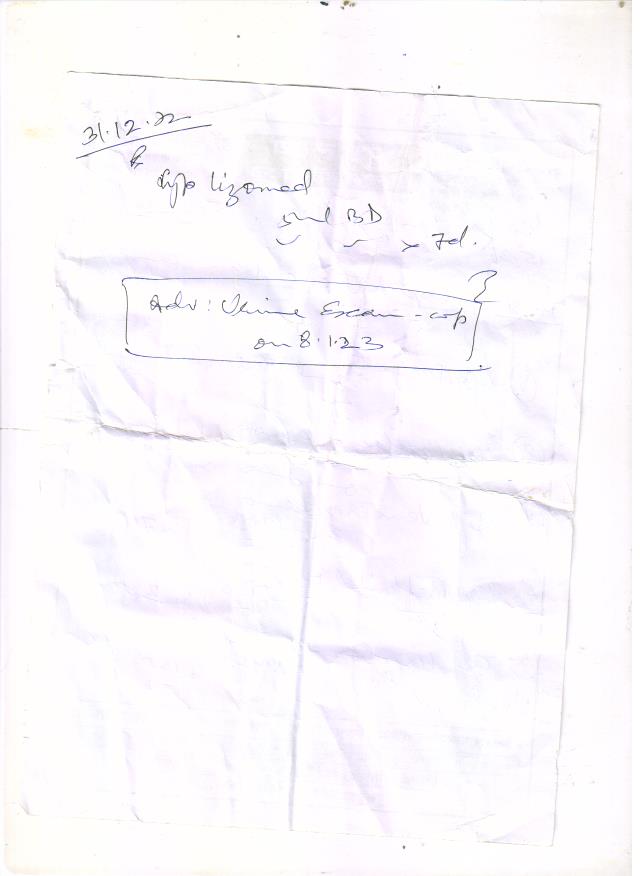 31.12.22
Syp Lizomed
5ml BD
x 7d.
Adv: Urine Exam -
on 8.1.23